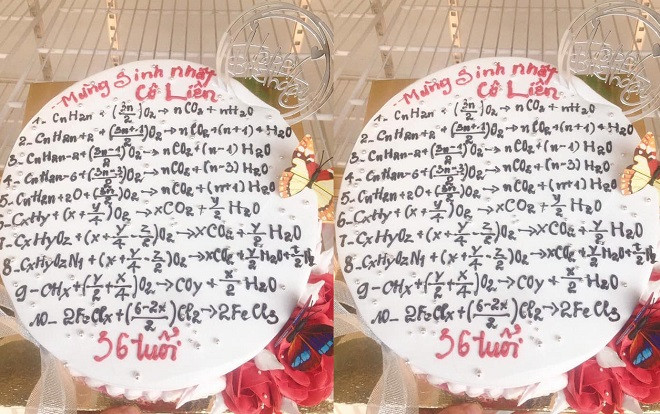 Mừng Sinh nhật
Cô Liên
1- CnH2n + (3n/2)O2 → nCO2 + nH2O
2- CnH2n+2 + (3n+1/2)O2 → nCO2 + (n+1) H2O
3- CnH2n-2 + (3n-1/2)O2 → nCO2 + (n-1) H2O
4- CnH2n-6 + (3n-3/2)O2 → nCO2 + (n-3) H2O
5- CnH2n+2O + (3n/2)O2 → nCO2 + (n+1) H2O
6- CxHy + (x + y/4)O2 → xCO2 + y/2 H2O
7- CxHyOz + (x + y/4 - z/2)O2 → xCO2 + y/2 H2O
8- CxHyOzNt + (x + y/4 - z/2)O2 → xCO2 + y/2 H2O + t/2 N2
9- CHx + (y/2 + x/4)O2 → COy + x/2 H2O
10- 2FeClx + (6-2x/2)Cl2 → 2FeCl3
36 tuổi
Mừng Sinh nhật
Cô Liên
1- CnH2n + (3n/2)O2 → nCO2 + nH2O
2- CnH2n+2 + (3n+1/2)O2 → nCO2 + (n+1) H2O
3- CnH2n-2 + (3n-1/2)O2 → nCO2 + (n-1) H2O
4- CnH2n-6 + (3n-3/2)O2 → nCO2 + (n-3) H2O
5- CnH2n+2O + (3n/2)O2 → nCO2 + (n+1) H2O
6- CxHy + (x + y/4)O2 → xCO2 + y/2 H2O
7- CxHyOz + (x + y/4 - z/2)O2 → xCO2 + y/2 H2O
8- CxHyOzNt + (x + y/4 - z/2)O2 → xCO2 + y/2 H2O + t/2 N2
9- CHx + (y/2 + x/4)O2 → COy + x/2 H2O
10- 2FeClx + (6-2x/2)Cl2 → 2FeCl3
36 tuổi